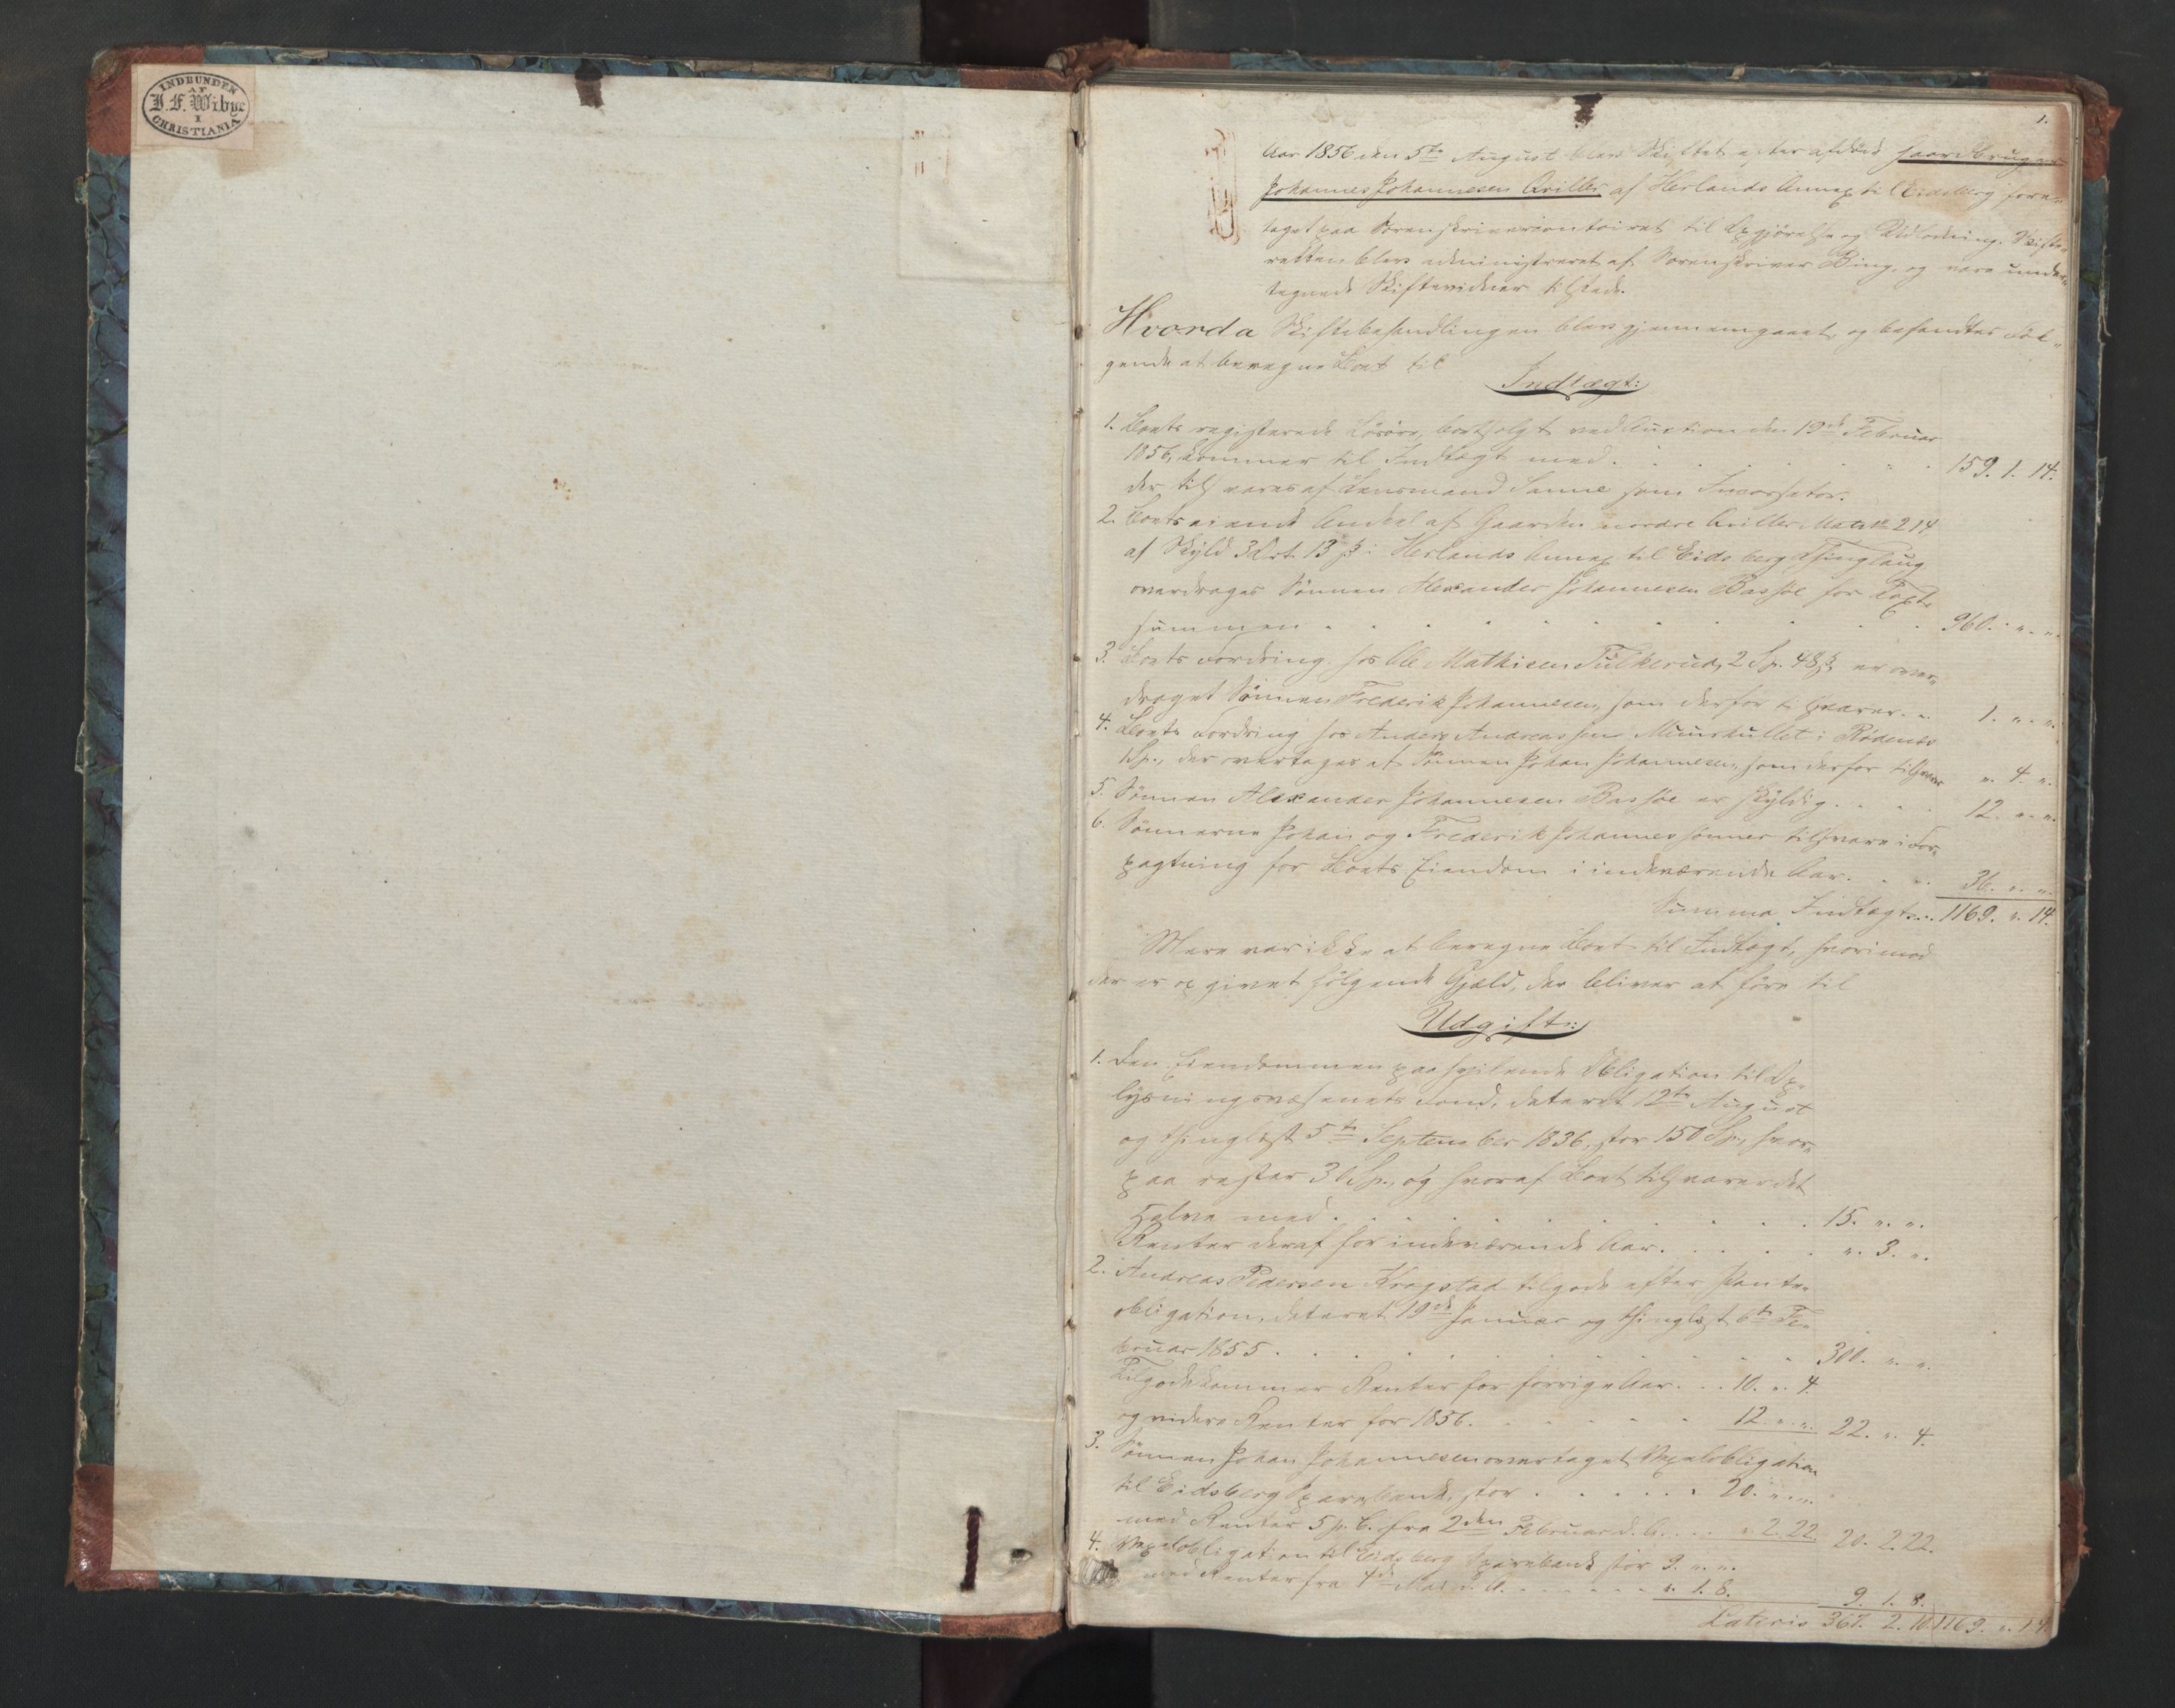 INDBUNDEN
AF
I. F. Wibye
I
CHRISTIANIA
1.
Aar 1856 den 5te August blev Skiftet efter afdöde Gaardbruger
Johannes Johannesen Qviller af Herlands Annex til Eidsberg fore-
taget paa Sorenskrivercontoiret til Opgjörelse og Udlodning. Skifte-
retten blev administreret af Sorenskriver Bing, og vare under-
tegnede Skiftevidner tilstede.
Hvorda Skiftebehandlingen blev gjennemgaaet, og befandtes föl-
gende at beregne Boet til
Indtægt:
1. Boets registerede Lösöre, bortsolgt ved Auction den 19de Februar
1856, kommer til Indtægt med . . . . . . 159. 1. 14.
der tilsvares af Lensmand Sanne som Incassator.
2. Boets eiende Andeel af Gaarden nordre Qviller Matr. No 214
af Skyld 3 Ort 13 ß i Herlands Annex til Eidsberg Thinglaug
overdrages Sönnen Alexander Johannesen Basjöe for Taxt-
summen . . . . . . . . . . 960. „. „.
3. Boets Fordring hos Ole Mathisen Tulkerud, 2 Sp. 48 ß, er over-
draget Sönnen Frederik Johannesen, som derfor tilsvarer . . 1. „. „.
4. Boets Fordring hos Anders Andreassen i Rödenæs
1 Sp., der overtages af Sönnen Johan Johannesen, som derfor tilsvarer „. 4. „.
5. Sönnen Alexander Johannesen Basjöe er skyldig . . . . 12. „. „.
6. Sönnerne Johan og Frederik Johannessönner tilsvare i For-
pagtning for Boets Eiendom i indeværende Aar . . . 36. „. „.
Summa Indtægt . . 1169. „. 14.
Mere var ikke at beregne Boet til Indtægt, hvorimod
der er opgivet fölgende Gjæld, der bliver at före til
Udgift:
1. Den Eiendommen paahvilende Obligation til Op-
lysningsvæsenets Fond, dateret 12te August
og thinglæst 5te September 1836, stor 150 Sp., hvor-
paa rester 30 Sp., og hvoraf Boet tilsvarer det
Halve med . . . . . . . . . . 15. „. „.
Renter deraf for indeværende Aar . . . . . „. 3. „.
2. Andreas Pedersen Kragstad tilgode efter Pante-
obligation, dateret 19de Januar og thinglæst 6te Fe-
bruar 1855 . . . . . . . . . . 300. „. „.
Tilgodekommer Renter for forrige Aar . . 10. „. 4.
og videre Renter for 1856 . . . . . 12. „. „. 22. „. 4.
3. Sönnen Johan Johannesen overtaget Vexelobligation
til Eidsberg Sparebank, stor . . . . . . 20. „. „.
med Renter 5 p. C. fra 2den Februar d. A. . . . „. 2. 22. 20. 2. 22.
4. Vexelobligation til Eidsberg Sparebank stor 9. „. „.
med Renter fra 4de Mai d. A. . . . . . . „. 1. 8. 9. 1. 8.
Lateris 367. 2. 10. 1169. „. 14.